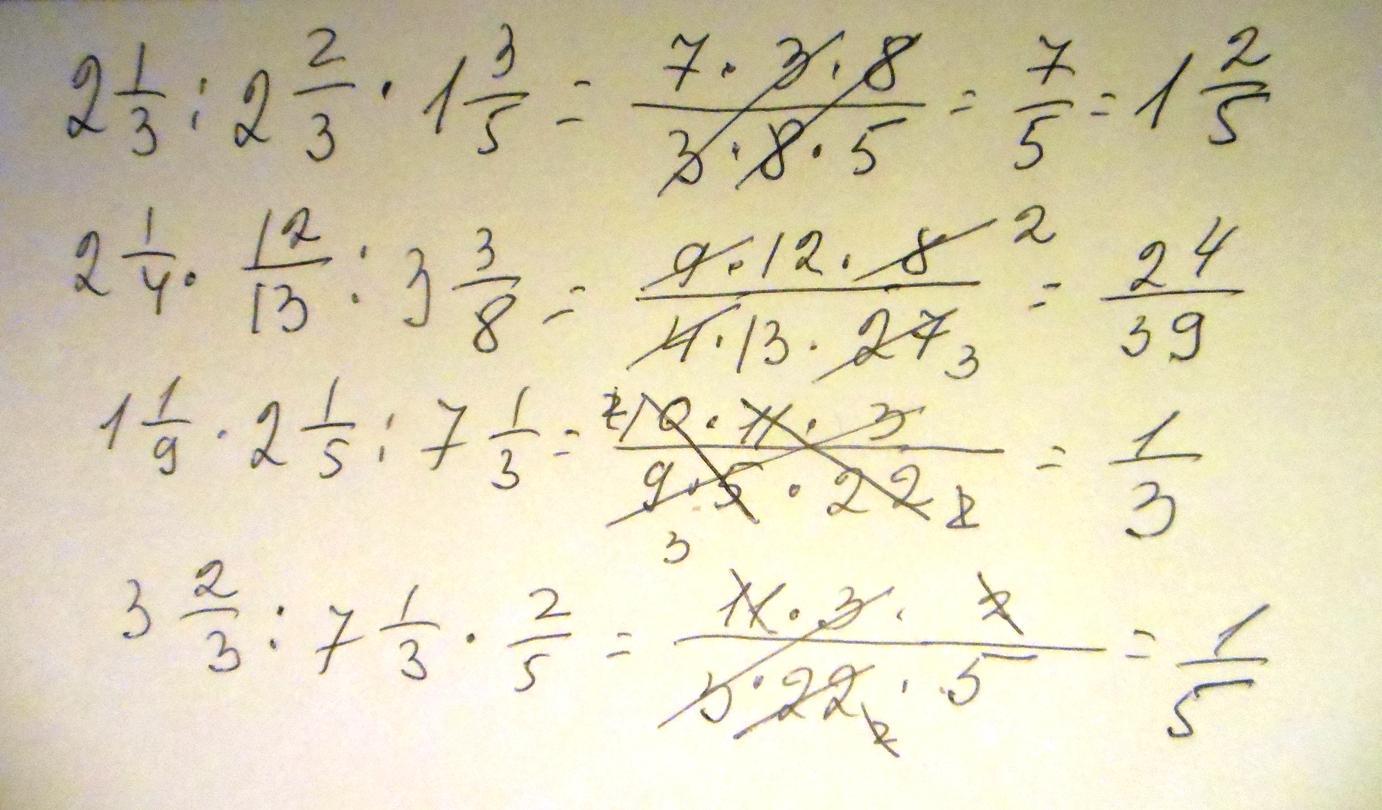 2 1/3 : 2 2/3 · 1 3/5 = (7 · 3 · 8)/(3 · 8 · 5) = 7/5 = 1 2/5
2 1/4 · 12/13 : 3 3/8 = (9 · 12 · 8 2)/(4 · 13 · 27 3) = 24/39
1 1/9 · 2 1/5 : 7 1/3 = (2 10 · 11 · 3)/(9 3 · 5 · 22 2) = 1/3
3 2/3 : 7 1/3 · 2/5 = (11 · 3 · 2)/(3 · 22 2 · 5) = 1/5